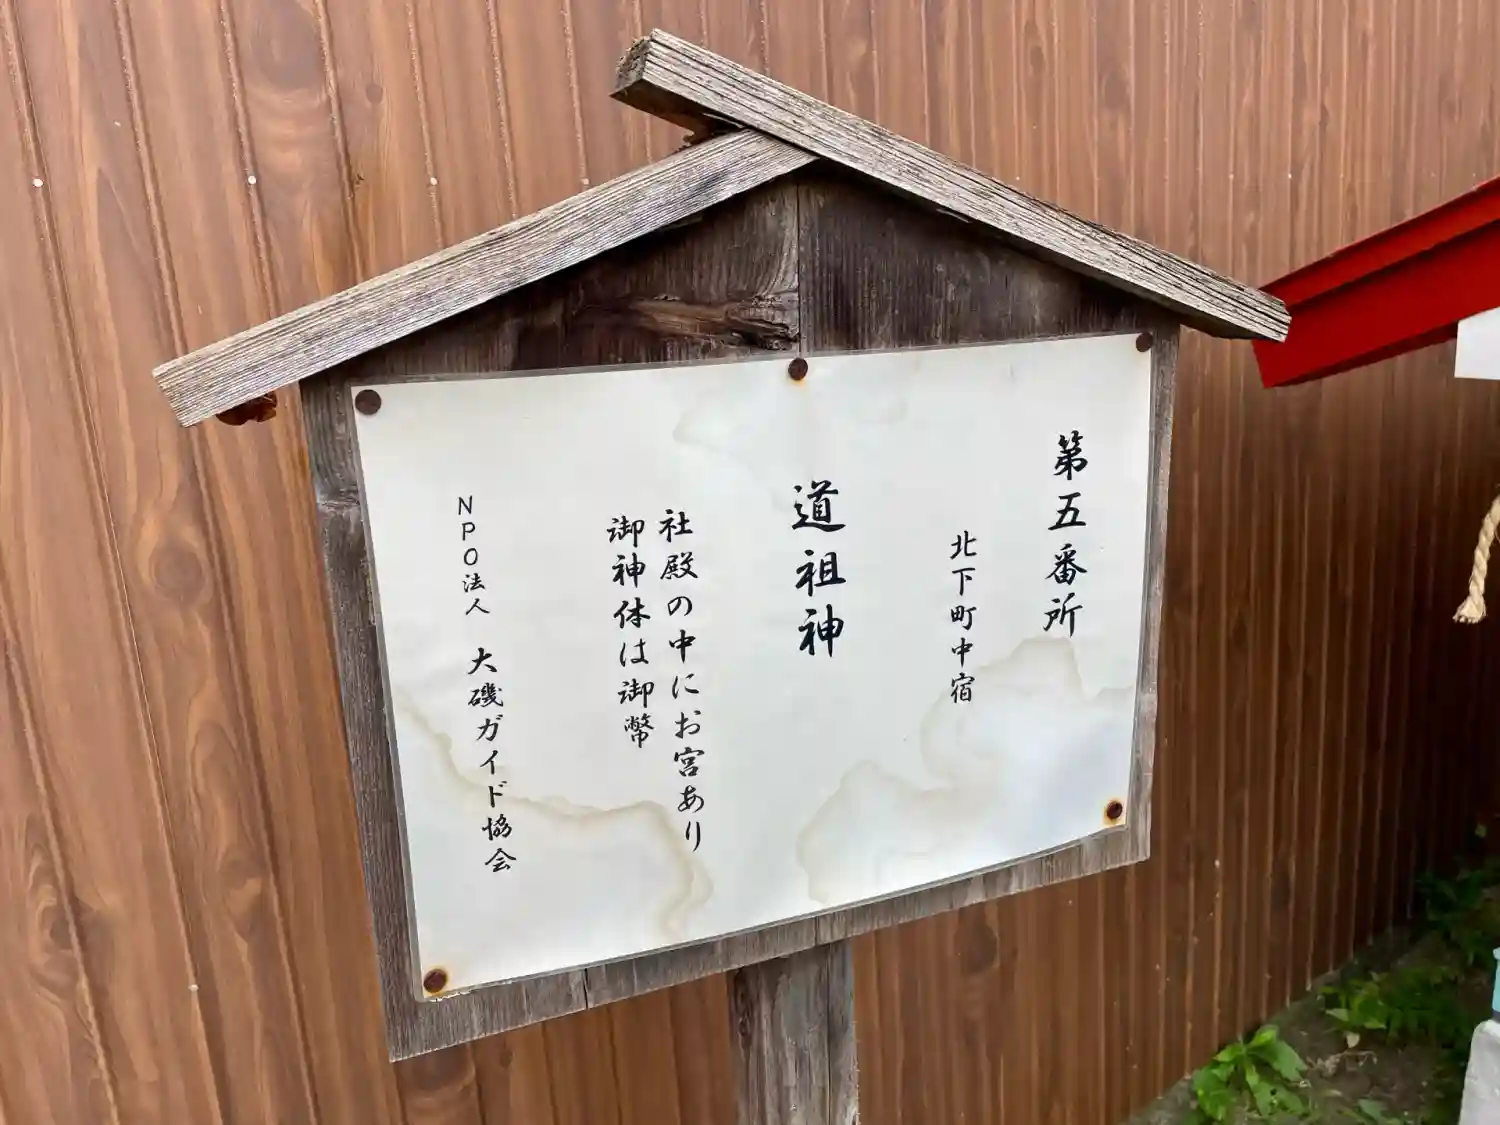 第五番所
北下町中宿
道祖神
社殿の中にお宮あり
御神体は御幣
NPO法人 大磯ガイド協会